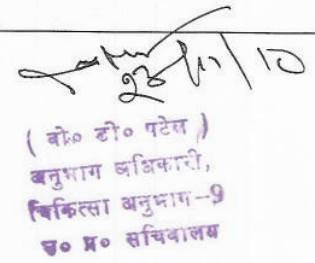 23/11/10
( वी० टी० पटेल )
अनुभाग अधिकारी,
चिकित्सा अनुभाग-9
उ० प्र० सचिवालय